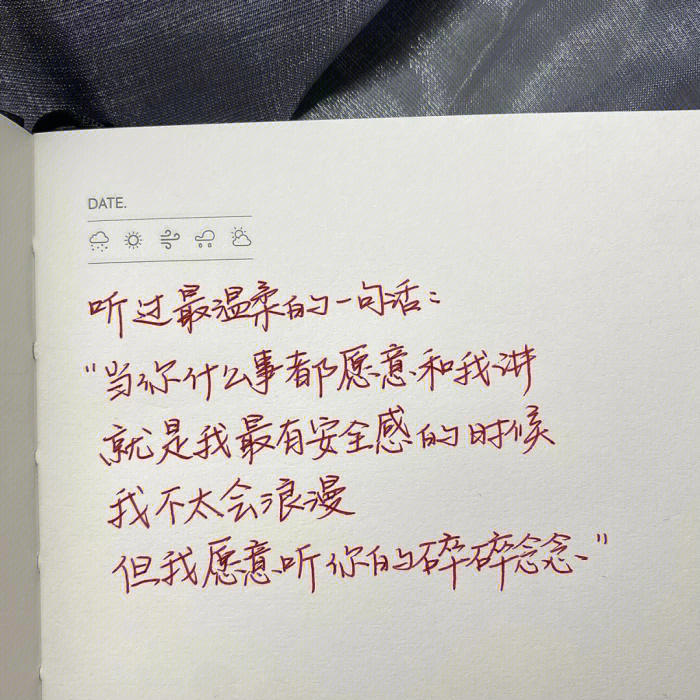 DATE.
听过最温柔的一句话:
"当你什么事都愿意和我讲
就是我最有安全感的时候
我不太会浪漫
但我愿意听你的碎碎念念、"